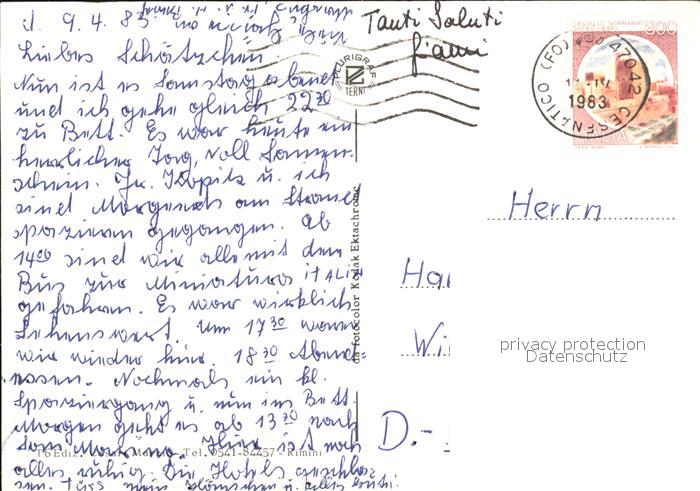 d. 9.4.83
Liebes Schätzchen!
Nun ist es Samstag abend
und ich gehe gleich 22 30
zu Bett. Es war heute ein
herrlicher Tag, voll Sonnen-
schein. Fr. Kopitz u. ich
sind Morgends am Strand
spazieren gegangen. Ab
14 00 sind wir alle mit dem
Bus zur Miniatura iTALIA
gefahren. Es war wirklich
Sehenswert. Um 17 30 waren
wir wieder hier. 18 30 Abend-
essen. Nochmals ein kl.
Spaziergang u. nun ins Bett.
Morgen geht es ab 13 30 nach
San Marino. Hier ist noch
alles ruhig. Die Hotels geschlos-
sen. Tüss mein
Tanti Saluti
PLURIGRAF
TERNI
da Fotocolor Kodak Ektachrome
Tel. 0541-82457 - Rimini
CASTELLO NORMANNO
300
47042 CESENATICO (FO)
1983
Herrn
Ha
Wi
D.-
privacy protection
Datenschutz